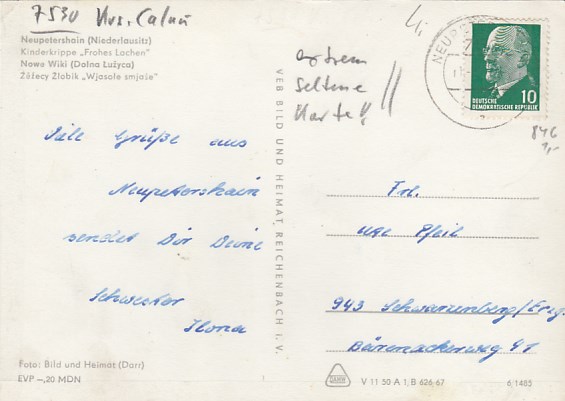 7530 Krs. Calau
Neupetershain (Niederlausitz)
Kinderkrippe „Frohes Lachen"
Nowe Wiki (Dolna Łužyca)
Źěśecy Žłobik „Wjasołe smjaśe"
extrem
seltene
Karte!!
NEUPE
DEUTSCHE
DEMOKRATISCHE REPUBLIK
10
846
1,-
Viele Grüße aus
Neupetershain
sendet Dir Deine
Schwester
Ilona
VEB BILD UND HEIMAT, REICHENBACH i. V.
Frl.
Ute Pfeil
943 Schwarzenberg/Erzg.
Bärenackerweg 41
Foto: Bild und Heimat (Darr)
EVP –,20 MDN
V 11 50 A 1 B 626-67
6/1485